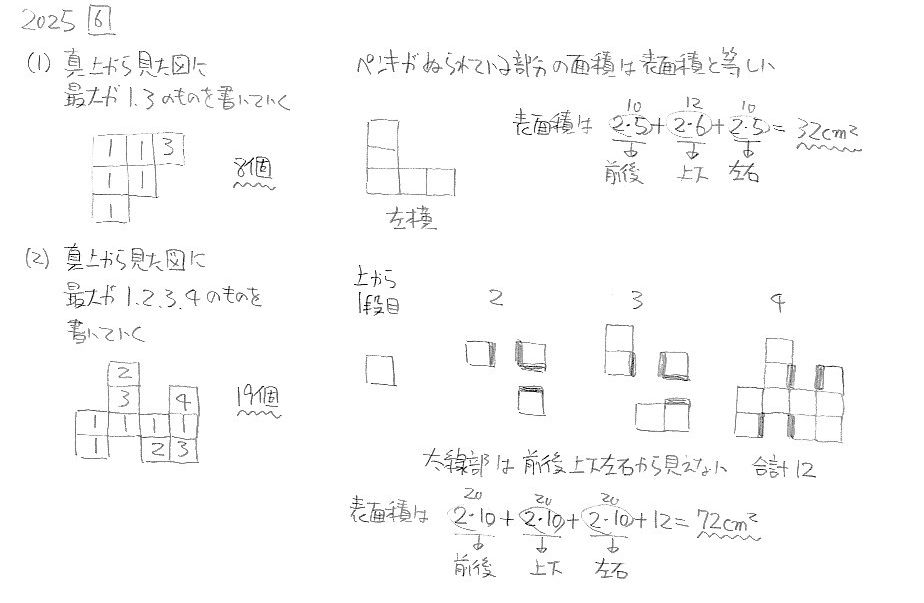 2025 6
(1) 真上から見た図に
最大が1.3のものを書いていく
1 1 3
1 1
1
8個
左横
ペンキがぬられている部分の面積は表面積と等しい
10 12 10
表面積は 2・5+2・6+2・5=32cm²
前後 上下 左右
(2) 真上から見た図に
最大が1.2.3.4のものを
書いていく
2
3 4
1 1 1 1
1 2 3
19個
上から
1段目
2 3 4
太線部は前後上下左右から見えない 合計12
20 20 20
表面積は 2・10+2・10+2・10+12=72cm²
前後 上下 左右